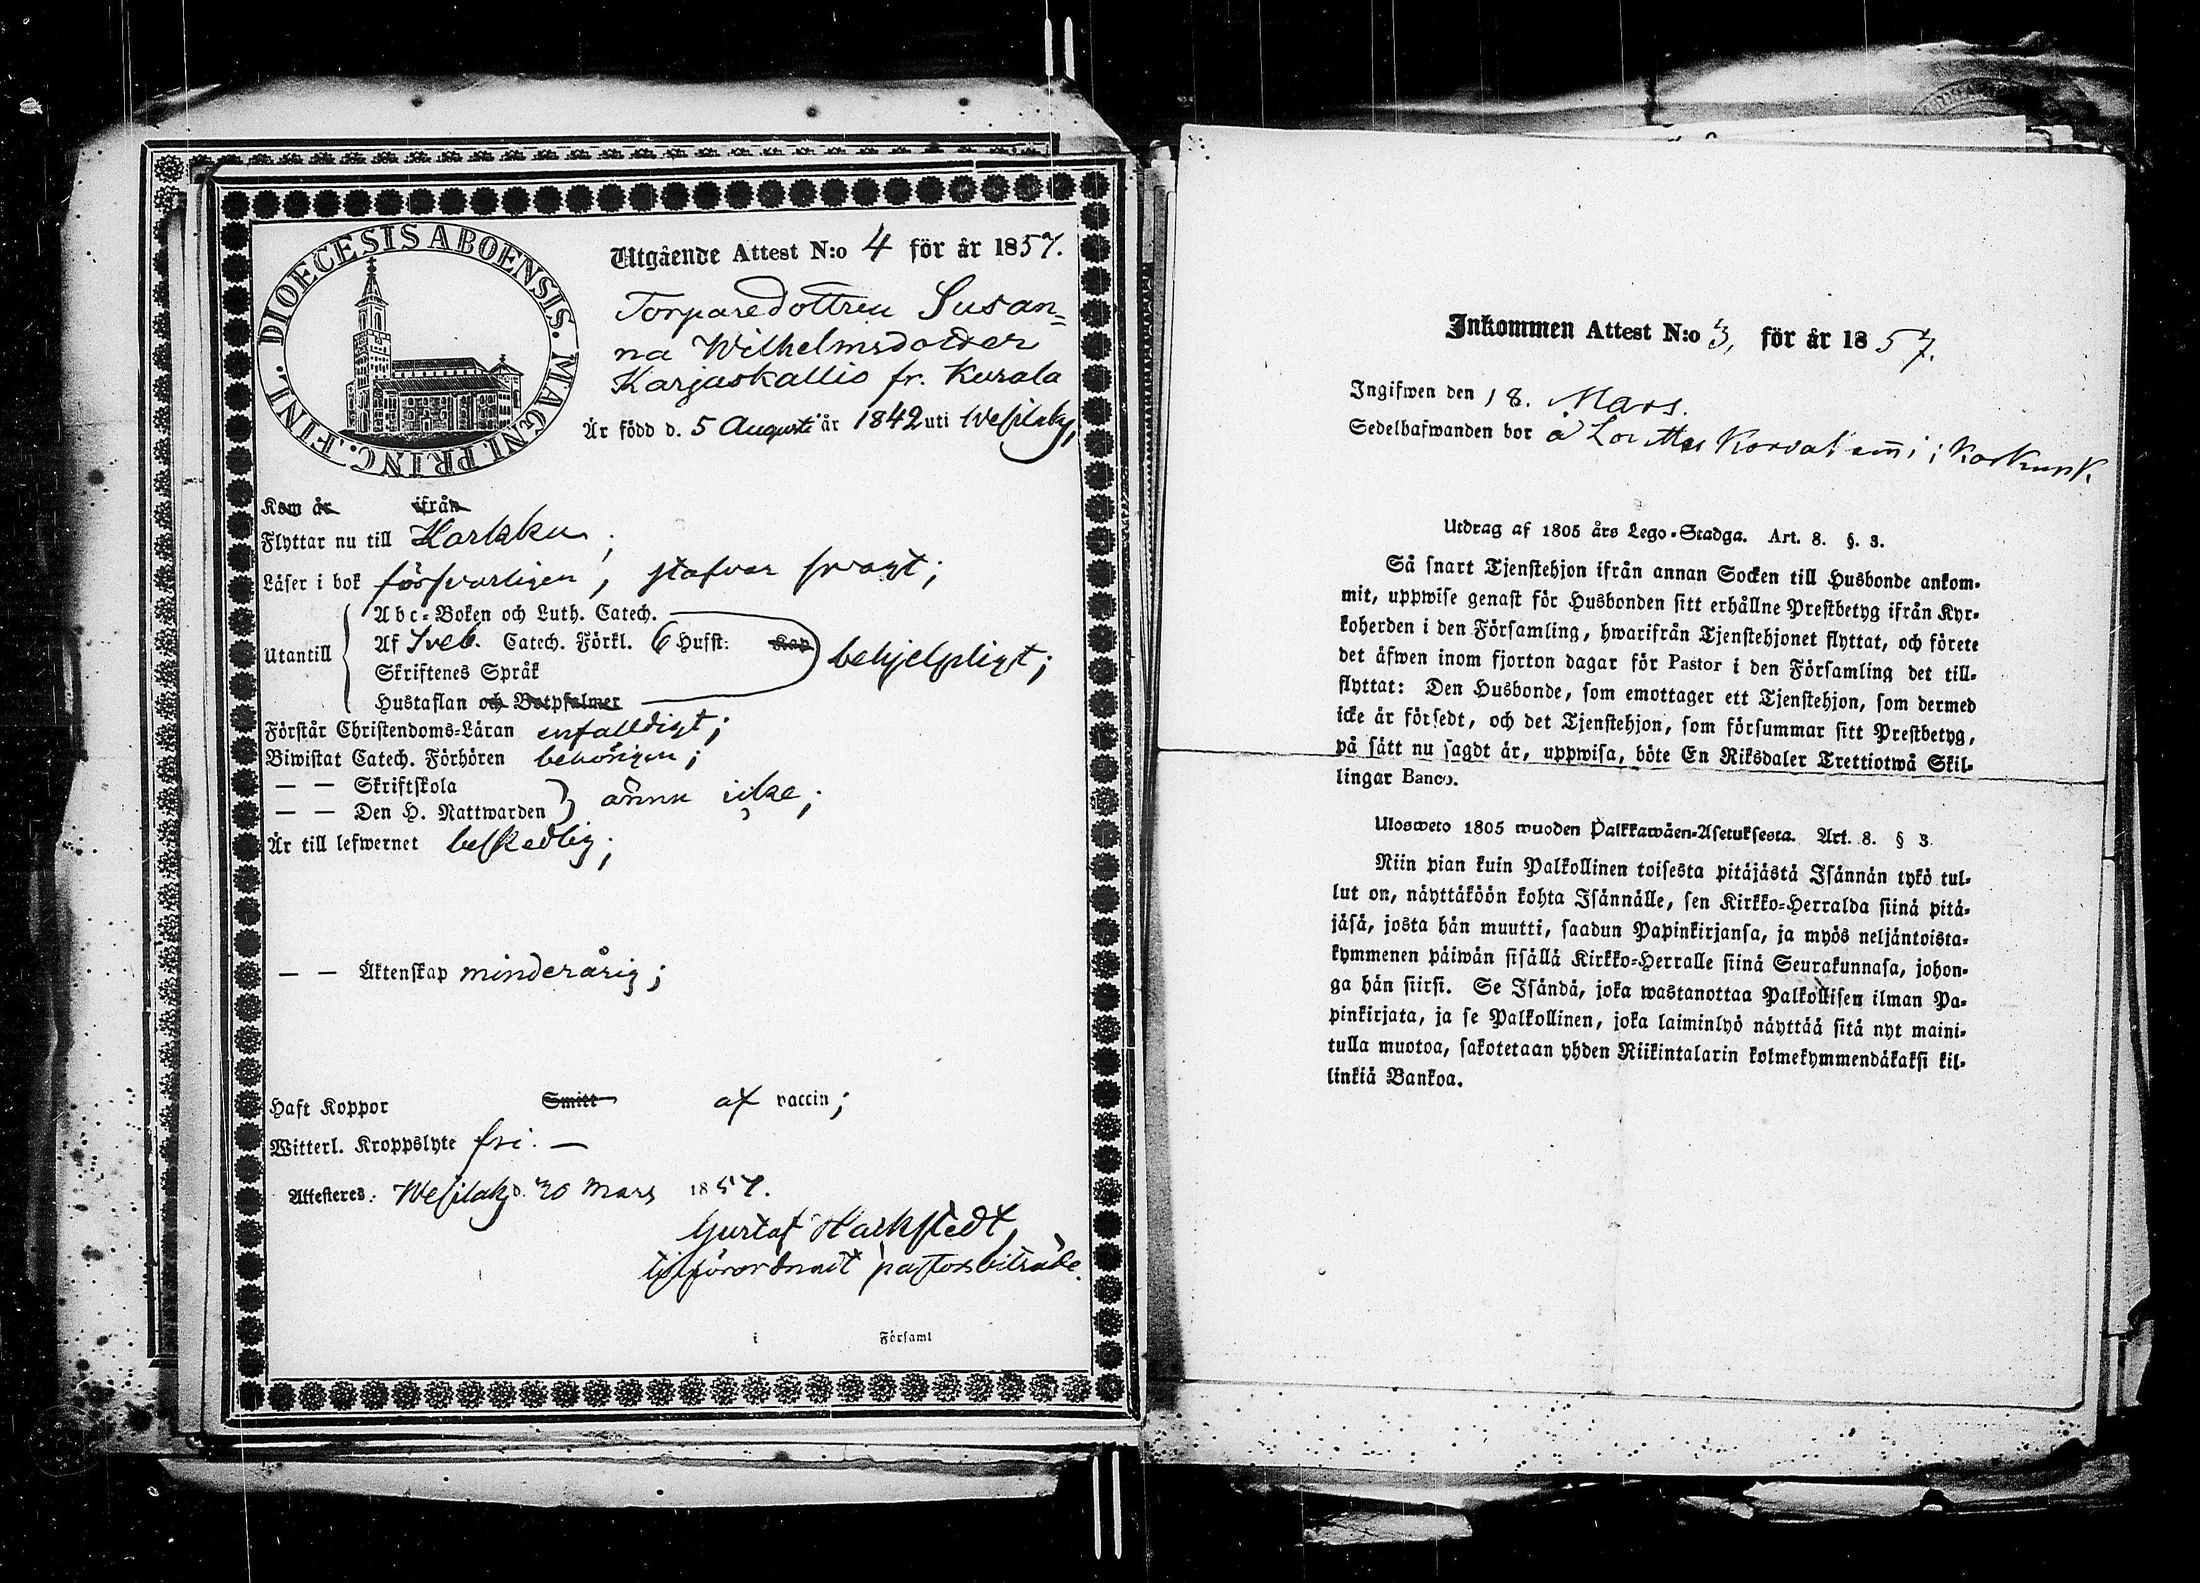 DIOECESIS ABOENSIS. MAGNI. PRINC. FINL.
Utgående Attest N:o 4 för år 1857.
Torparedottren Susan=
na Wilhelmsdotter
Karjaskallio fr. Kurala
Är född d. 5 Augusti år 1842 uti Wesilaks,
Kom år ifrån
Flyttar nu till Karkku;
Läser i bok försvarligen, stafvar svagt;
Abc-Boken och Luth. Catech.
Utantill Af Sveb. Catech. Förkl. 6 Hufst: Kap behjelpligt;
Skriftenes Språk
Hustaflan och Botpsalmer
Förstår Christendoms-Läran enfalldigt;
Biwistat Catech. Förhören behörigen;
— — Skriftskola
— — Den H. Nattwarden } ännu icke;
Är till lefwernet beskedlig;
— — Äktenskap minderårig;
Haft Koppor Smitt af vaccin;
Witterl. Kroppslyte fri. —
Attesteres: Wesilaks d. 20 Mars 1857.
Gustaf Harkstedt,
tjstförordnadt pastorsbiträde.
i Församl
Inkommen Attest N:o 3, för år 1857.
Ingifwen den 18. Mars.
Sedelhafwanden bor å Korvalammi i Karkunk.
Utdrag af 1805 års Lego-Stadga. Art. 8. §. 3.
Så snart Tjenstehjon ifrån annan Socken till Husbonde ankom-
mit, uppwise genast för Husbonden sitt erhållne Prestbetyg ifrån Kyr-
koherden i den Församling, hwarifrån Tjenstehjonet flyttat, och förete
det äfwen inom fjorton dagar för Pastor i den Församling det till-
flyttat: Den Husbonde, som emottager ett Tjenstehjon, som dermed
icke är försedt, och det Tjenstehjon, som försummar sitt Prestbetyg,
på sätt nu sagdt är, uppwisa, böte En Riksdaler Trettiotwå Skil-
lingar Banco.
Ulosweto 1805 wuoden Palkkawäen-Asetuksesta. Art. 8. § 3
Niin pian kuin Palkollinen toisesta pitäjästä Isännän tykö tul-
lut on, näyttäköön kohta Isännälle, sen Kirkko-Herralda siinä pitä-
jäsä, josta hän muutti, saadun Papinkirjansa, ja myös neljäntoista-
kymmenen päiwän sisällä Kirkko-Herralle siinä Seurakunnasa, johon-
ga hän siirsi. Se Isändä, joka wastanottaa Palkollisen ilman Pa-
pinkirjata, ja se Palkollinen, joka laiminlyö näyttää sitä nyt maini-
tulla muotoa, sakotetaan yhden Riikintalarin kolmekymmendäkaksi kil-
linkiä Bankoa.